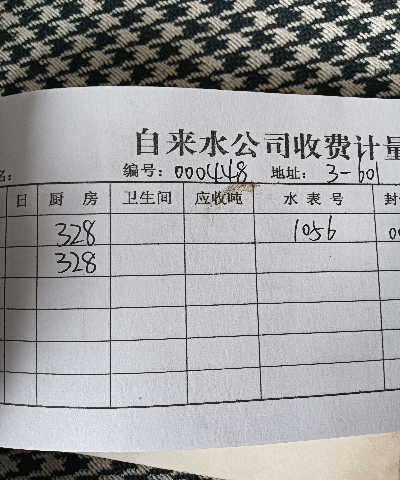 自来水公司收费计量
名: 编号: 000448 地址: 3-601
日 厨房 卫生间 应收吨 水表号 封
328 1056 00
328